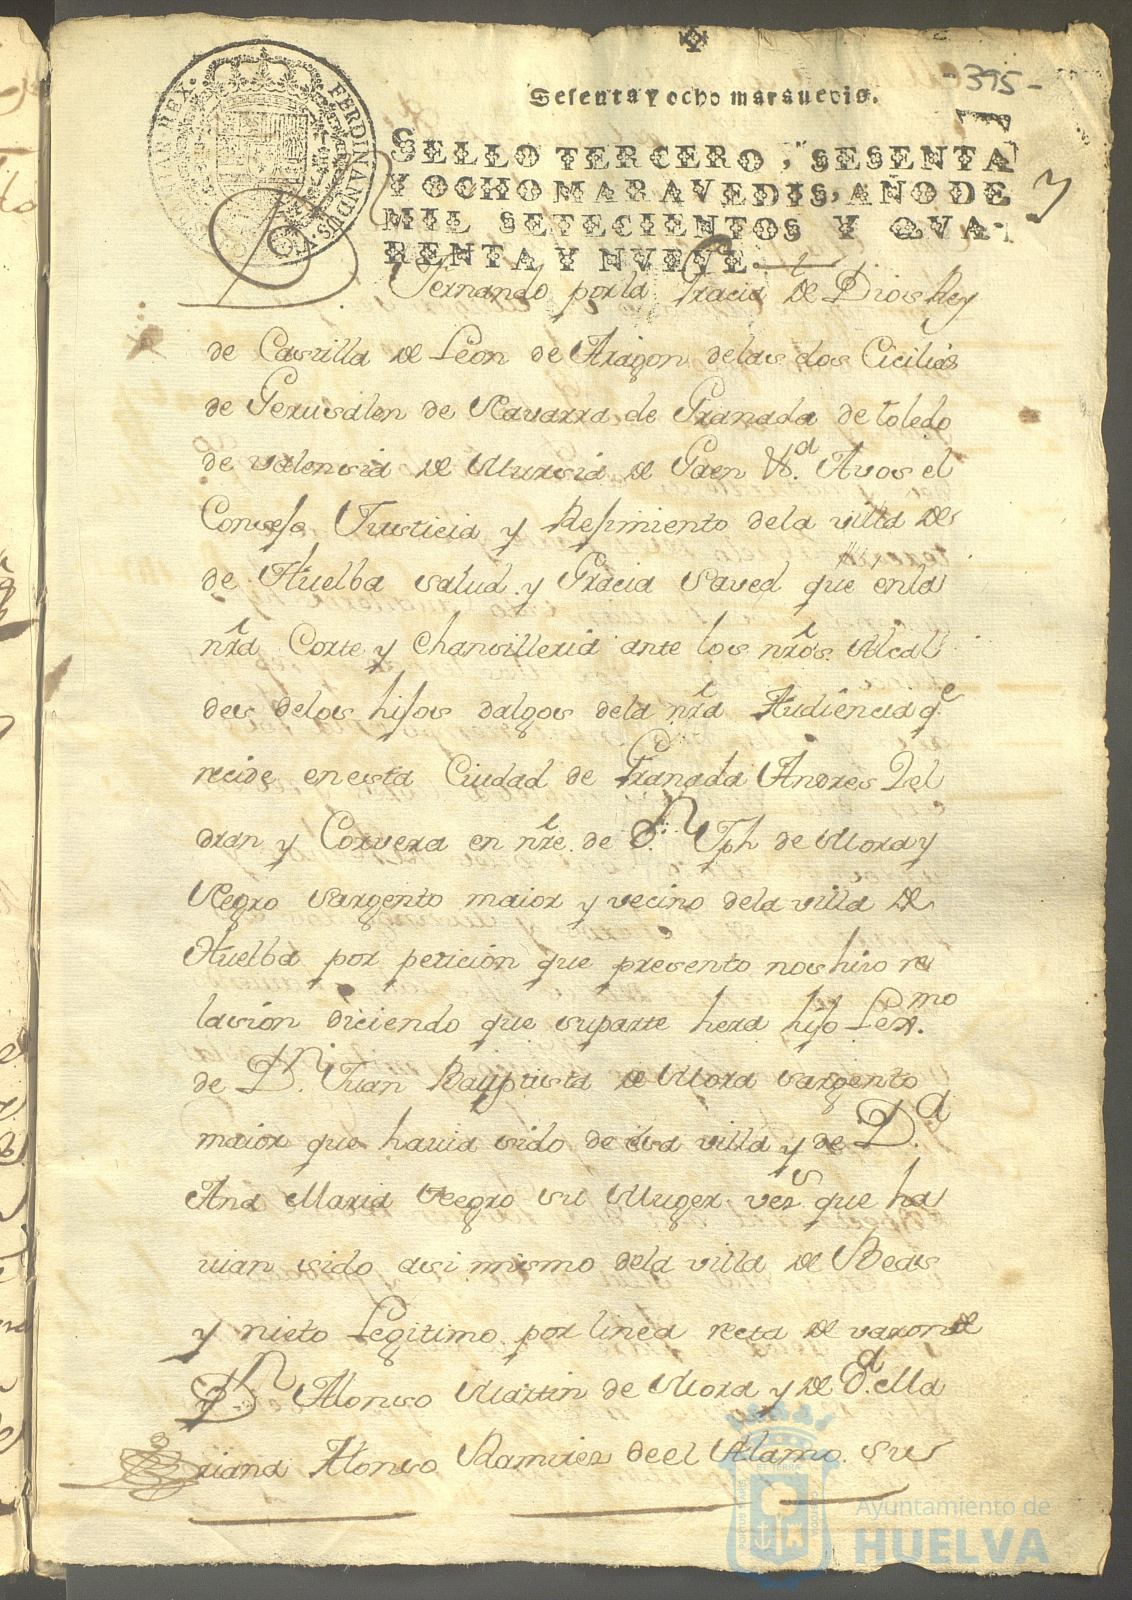 -395-
Sesenta y ocho maravedis.
SELLO TERCERO, SESENTA
Y OCHO MARAVEDIS, AÑO DE
MIL SETECIENTOS Y QVA-
RENTA Y NVEVE.
FERDINANDUS
REX
Fernando por la Gracia de Dios Rey
de Castilla de Leon de Aragon delas dos Cicilias
de Gerusalen de Navarra de Granada de toledo
de valensia de Mursia de Gaen &.ª Avos el
Consejo Justicia y Rejimiento dela villa de
de Huelba salud y Gracia Saved que enla
nrâ Corte y Chansilleria ante los nrôs Alcal
des delos hijos dalgos dela nrâ Audiencia q.e
recide en esta Ciudad de Granada Andres Del
dran y Corvera en nrê. de D.n Jph de Mora y
Negro Sargento maior y vecino dela villa de
Huelba por peticion que presento nos hiso re
lasion diciendo que suparte hera hijo Lexmo.
de D.n Juan Bauptista de Mora sargento
maior que havia sido de esa villa y de D.ª
Ana Maria Negro su Muger vezs que ha
vian sido asi mismo dela villa de Beas
y nieto Legitimo por linea recta de varon de
D.n Alonso Martin de Mora y de D.ª Ma
riana Alonso Ramires de el Alamo sus
Ayuntamiento de
HUELVA